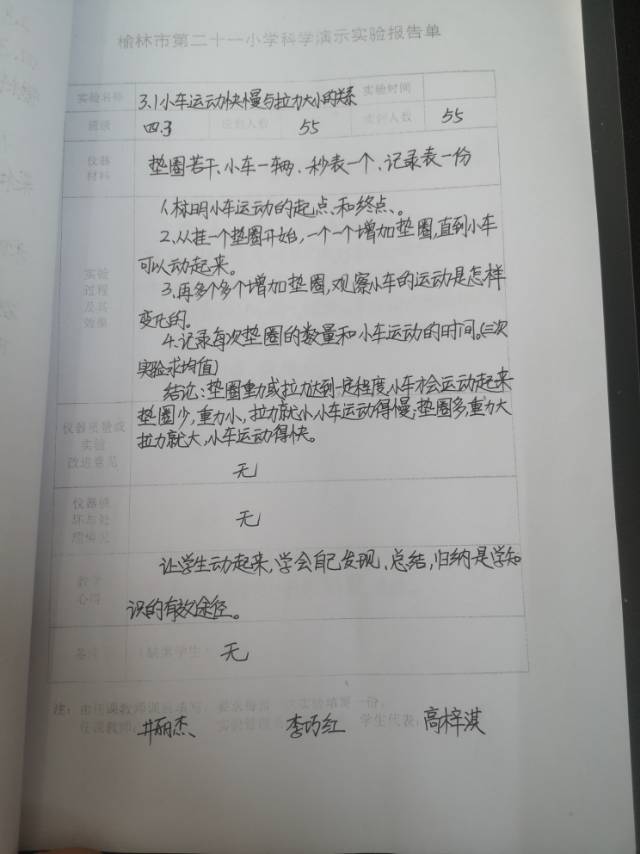 榆林市第二十一小学科学演示实验报告单
实验名称 3.1小车运动快慢与拉力大小的关系 实验时间
班级 四.3 55 人数 55
仪器 材料 垫圈若干、小车一辆、秒表一个、记录表一份
实验 过程 及其 效果
1.标明小车运动的起点、和终点、。
2.从挂一个垫圈开始,一个一个增加垫圈,直到小车
可以动起来。
3.再多个多个增加垫圈,观察小车的运动是怎样
变化的。
4.记录每次垫圈的数量和小车运动的时间。(三次
实验求均值)
结论:垫圈重力或拉力达到一定程度小车才会运动起来
垫圈少,重力小,拉力就小,小车运动得慢;垫圈多,重力大
拉力就大,小车运动得快。
仪器质量或
实验
改进意见
无
仪器损
坏与处
理情况
无
教学
心得
让学生动起来,学会自己发现、总结,归纳是学知
识的有效途径。
(缺席学生) 无
注:
任课教师: 井丽杰、 李巧红 学生代表: 高梓淇